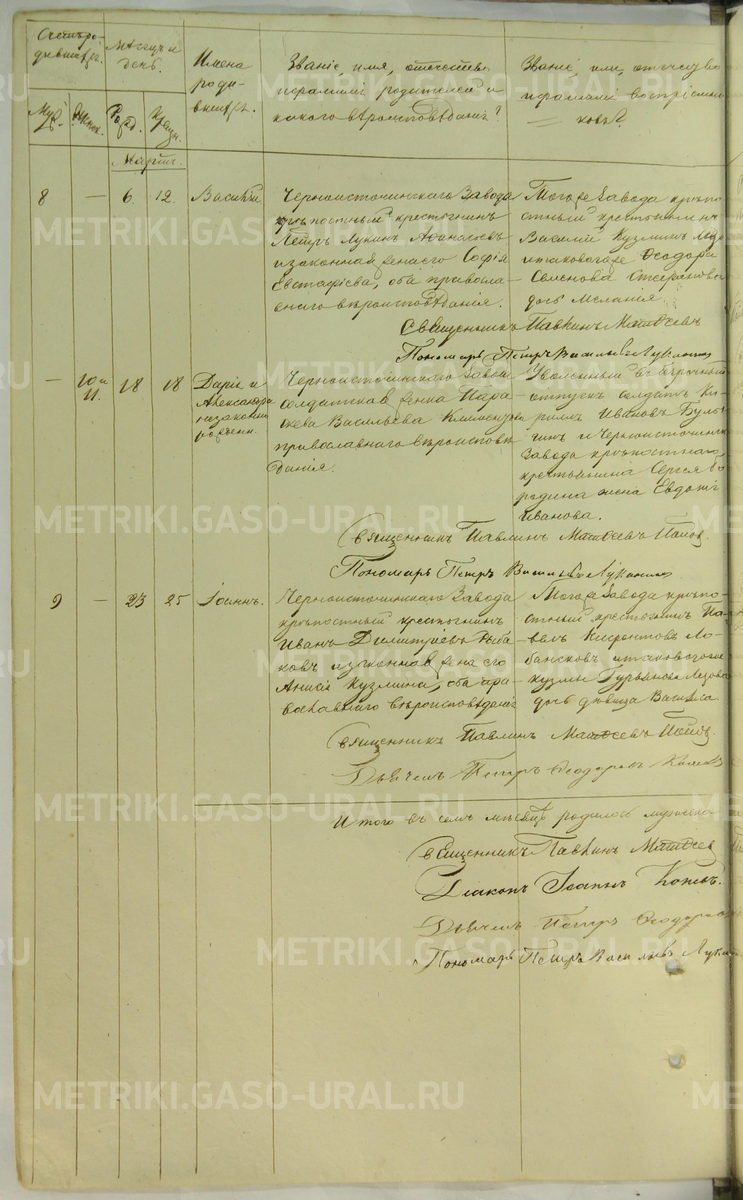 Счетъ родившихся.
Мѣсяцъ и день.
Имена родившихся.
Званіе, имя, отчество
и фамилія родителей и
какого вѣроисповѣданія?
Званіе, имя, отчество
и фамилія воспріемниковъ?
Муж. Женск. Рожд. Крещ.
Мартъ.
8 — 6. 12. Василій
Черноисточинскаго Завода
крѣпостный крестьянинъ
Петръ Лукинъ Аѳанасьевъ
и законная жена его Софія
Евстафіева, оба православнаго вѣроисповѣданія.
Того же Завода крѣпостный крестьянинъ
Василій Кузминъ
и таковаго же Ѳеодора
Семенова
дочь Меланія
Священникъ Павлинъ Матѳеевъ
Пономарь Петръ Васильевъ Луканинъ
— 10 и 11. 18 18 Дарія и
Александра
незаконно
рожденн.
Черноисточинскаго Завода
солдатская женка Параскева Васильева
православнаго вѣроисповѣданія.
Уволенный въ безсрочный
отпускъ солдатъ
Ивановъ
и Черноисточинскаго
Завода крѣпостнаго
крестьянина Сергея Бородина жена Евдокія
Иванова.
Священникъ Павлинъ Матѳеевъ Поповъ
Пономарь Петръ Васильевъ Луканинъ
9 — 23 25 Іоаннъ.
Черноисточинскаго Завода
крѣпостный крестьянинъ
Иванъ Димитріевъ Рыбаковъ и законная жена его
Анисія Кузмина, оба православнаго вѣроисповѣданія
Того же Завода крѣпостный крестьянинъ Павелъ
и таковаго же
Кузмы Гурьянова
дочь дѣвица Василиса.
Священникъ Павлинъ Матѳеевъ Поповъ.
Дьячекъ Петръ Ѳеодоровъ
Итого въ семъ мѣсяцѣ родилось мужеска
Священникъ Павлинъ Матѳеев
Діаконъ Іоаннъ
Дьячекъ Петръ Ѳеодоров
Пономарь Петръ Васильевъ Лукан
METRIKI.GASO-URAL.RU